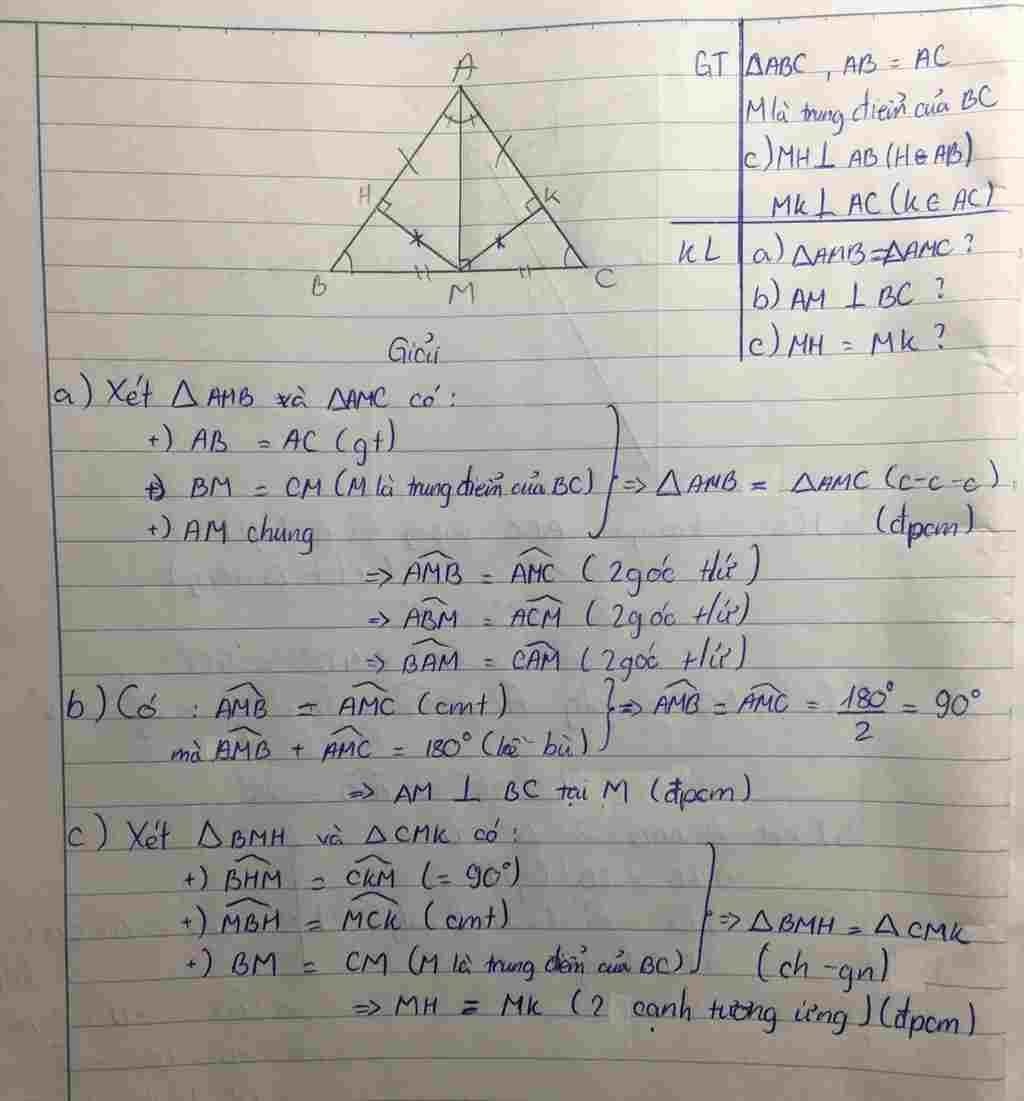 A
H
K
B
M
C
GT ΔABC, AB = AC
M là trung điểm của BC
c) MH ⊥ AB (H ∈ AB)
MK ⊥ AC (K ∈ AC)
KL a) ΔAMB = ΔAMC ?
b) AM ⊥ BC ?
c) MH = MK ?
Giải
a) Xét ΔAMB và ΔAMC có :
+) AB = AC (gt)
+) BM = CM (M là trung điểm của BC) => ΔAMB = ΔAMC (c-c-c)
+) AM chung (đpcm)
=> \widehat{AMB} = \widehat{AMC} (2 góc t/ứ)
=> \widehat{ABM} = \widehat{ACM} (2 góc t/ứ)
=> \widehat{BAM} = \widehat{CAM} (2 góc t/ứ)
b) Có : \widehat{AMB} = \widehat{AMC} (cmt) => \widehat{AMB} = \widehat{AMC} = \frac{180°}{2} = 90°
mà \widehat{AMB} + \widehat{AMC} = 180° (kề bù)
=> AM ⊥ BC tại M (đpcm)
c) Xét ΔBMH và ΔCMK có :
+) \widehat{BHM} = \widehat{CKM} (= 90°)
+) \widehat{MBH} = \widehat{MCK} (cmt) => ΔBMH = ΔCMK
+) BM = CM (M là trung điểm của BC) (ch - gn)
=> MH = MK (2 cạnh tương ứng) (đpcm)